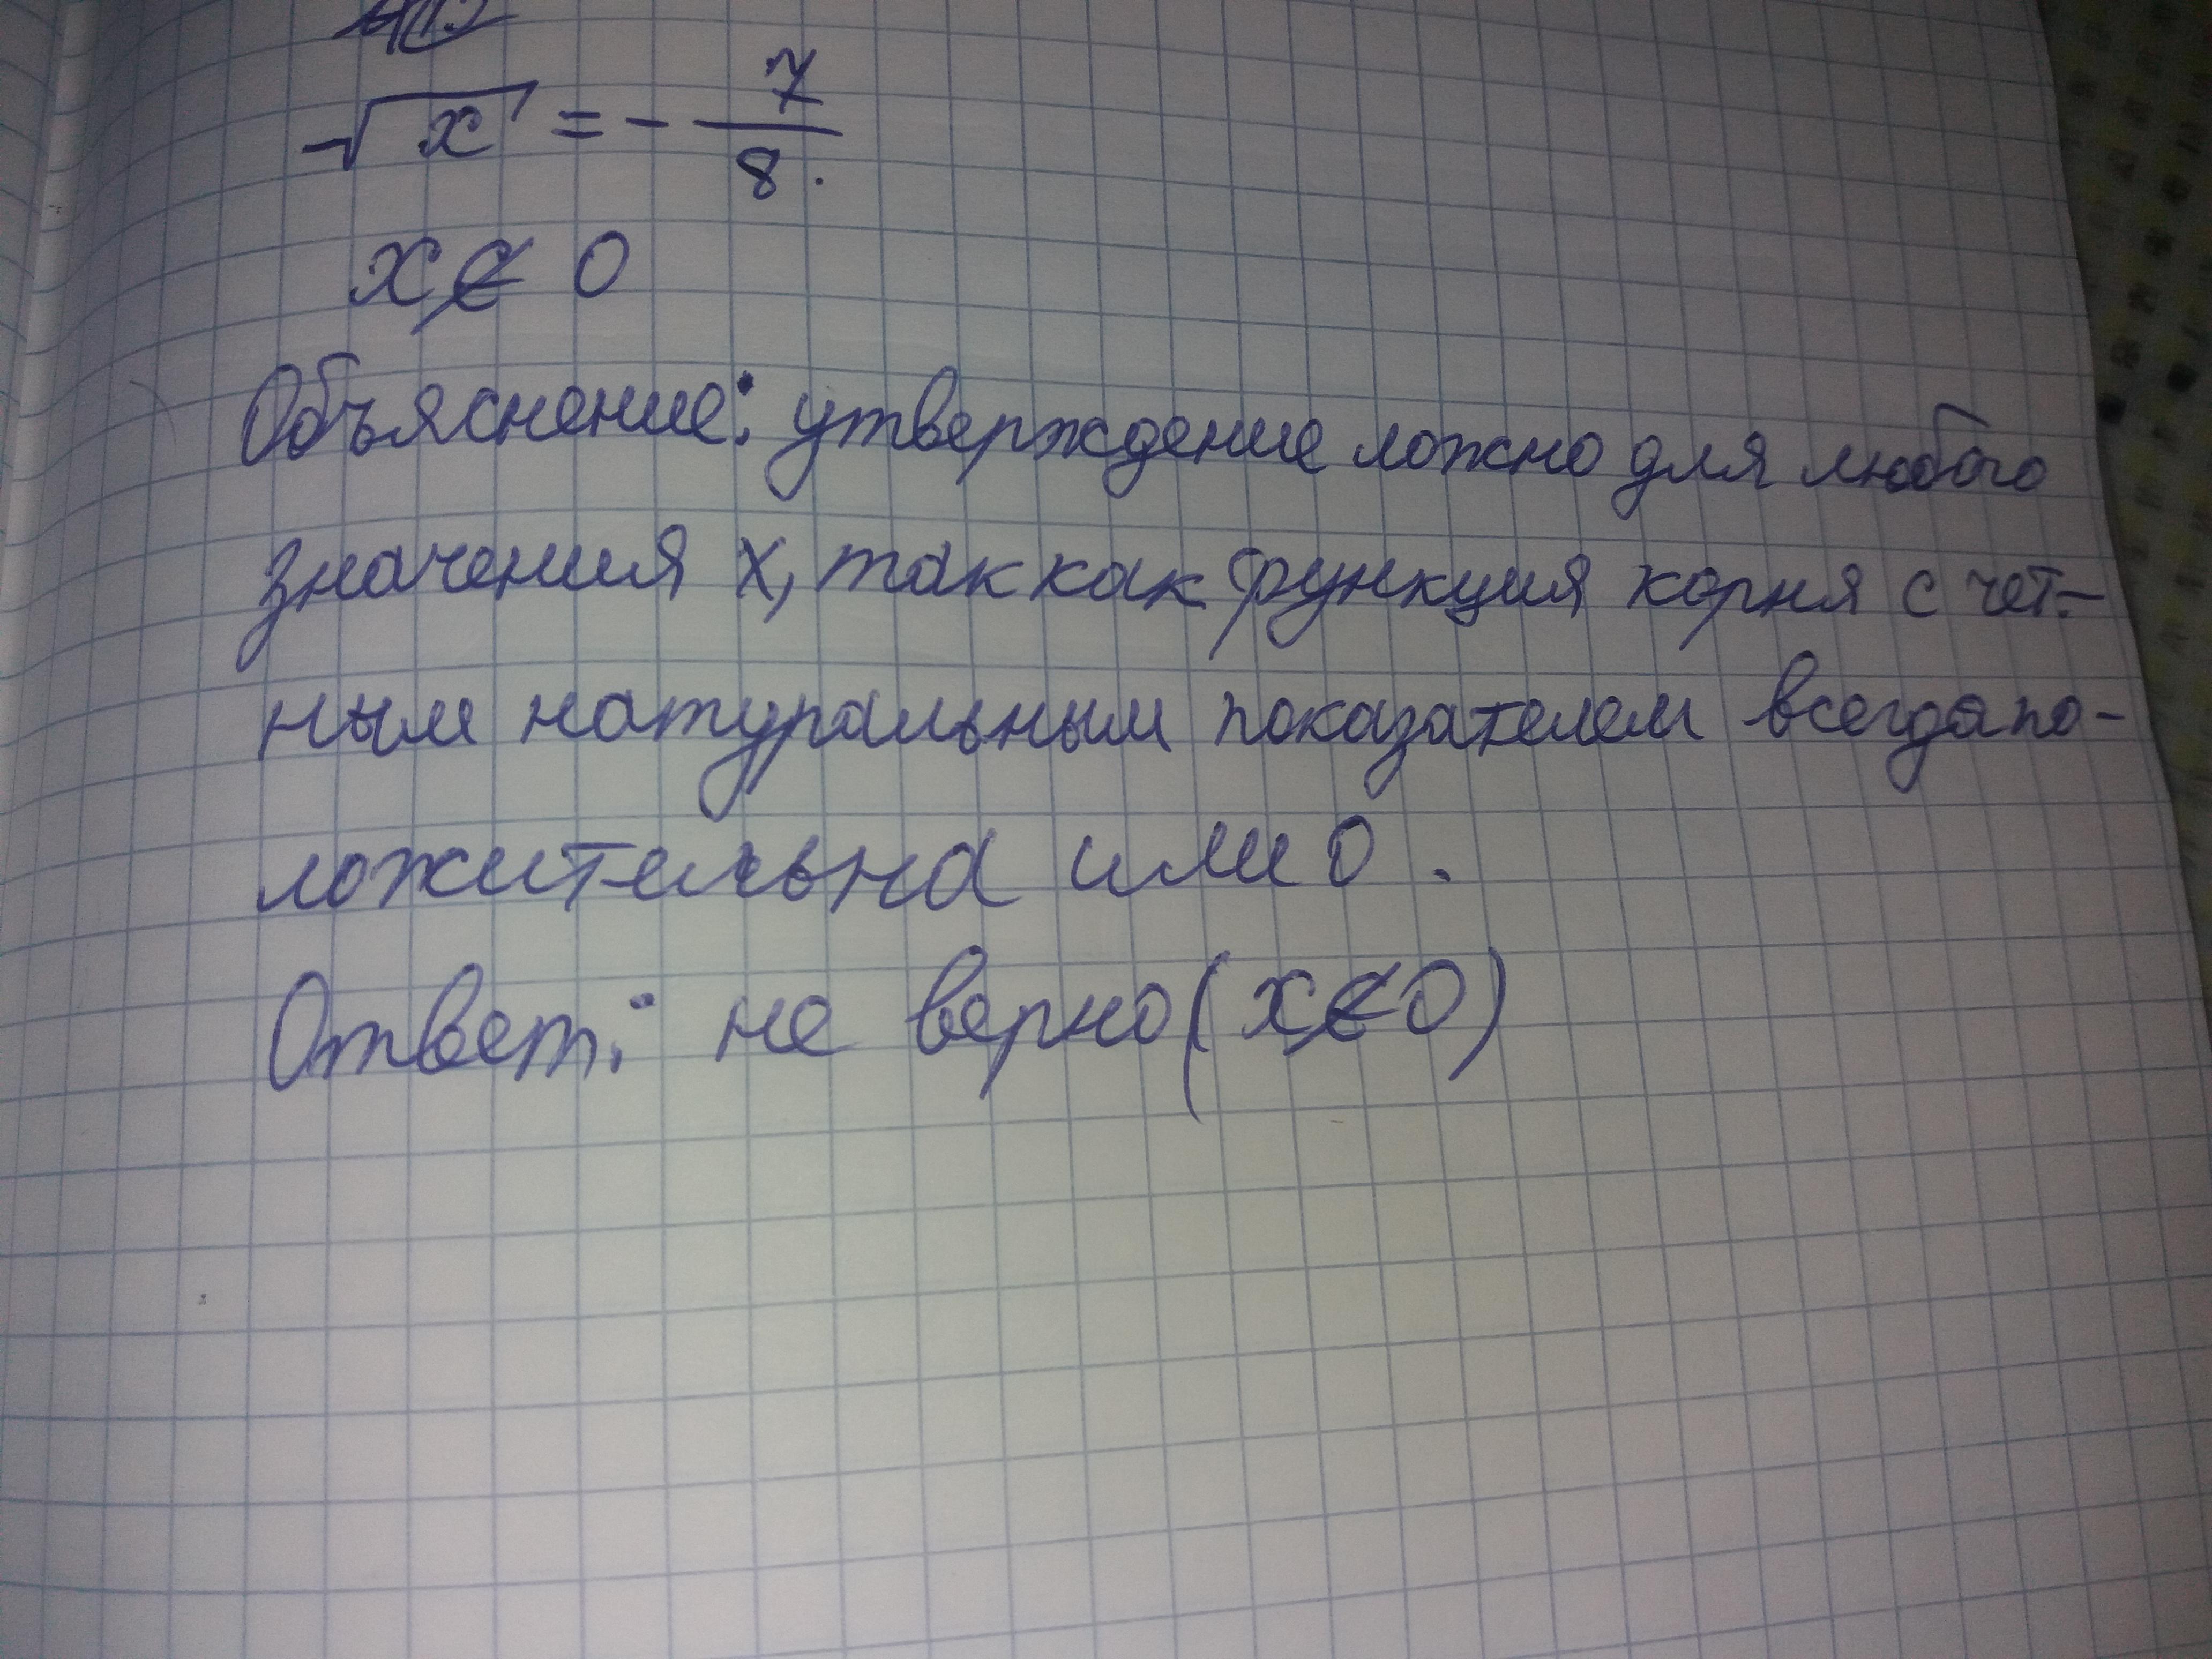 √x = - 7/8.
x ∉ 0
Объяснение: утверждение ложно для любого
значения x, так как функция корня с чет-
ным натуральным показателем всегда по-
ложительна или 0.
Ответ: не верно (x ∉ 0)